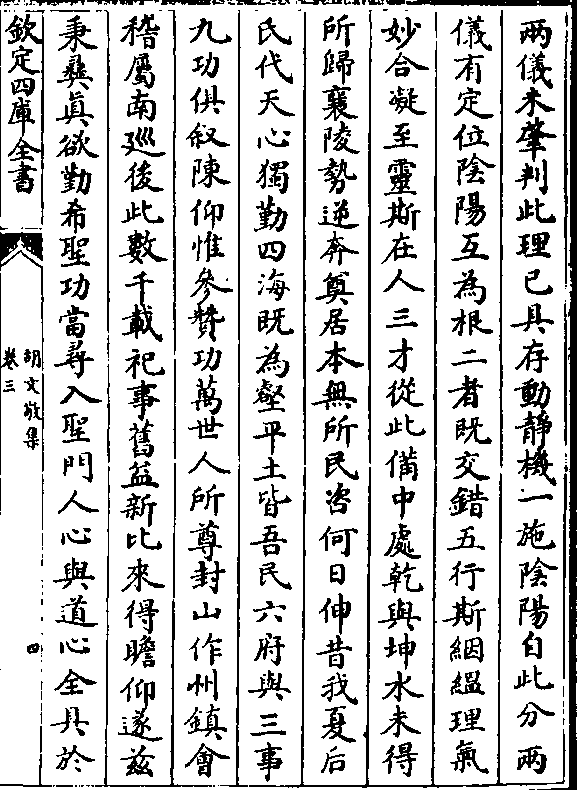 兩儀未肇判此理已具存動靜機一施陰陽自此分兩
儀有定位陰陽互為根二者既交錯五行斯絪縕理氣
妙合凝至靈斯在人三才從此備中處乾與坤水未得
所歸襄陵勢逆奔奠居本無所民咨何日伸昔我夏后
氏代天心獨勤四海既為壑平土皆吾民六府與三事
九功俱敘陳仰惟參贊功萬世人所尊封山作州鎮會
稽屬南廵後此數千載祀事舊益新比來得瞻仰遂兹
秉彞眞欲勤希聖功當尋入聖門人心與道心全具於
欽定四庫全書
胡文敬集
卷三
四